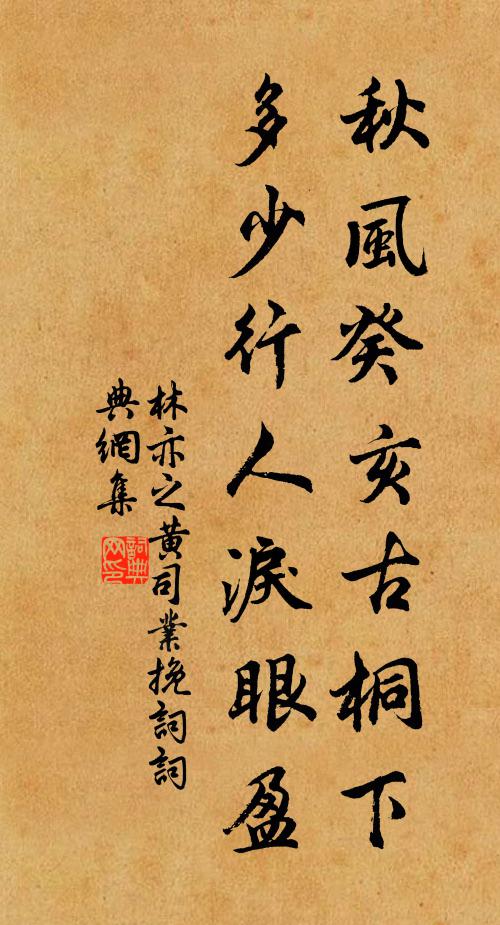 秋風癸亥古桐下
多少行人淚眼盈
林亦之黄司業挽詞詞
典網集
詞典
网印